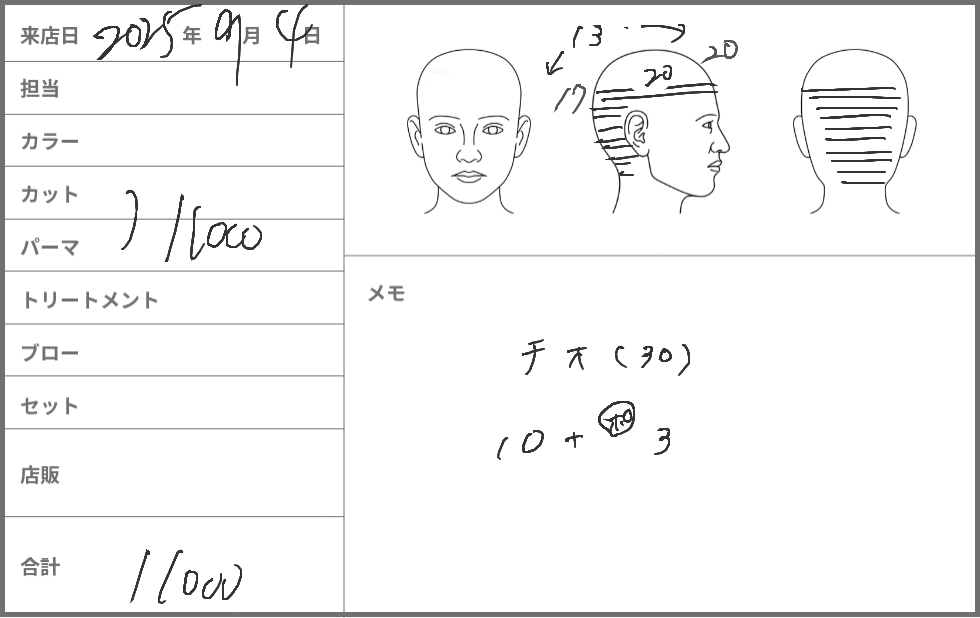 来店日 2025年 9月 4日
担当
カラー
カット
パーマ
11000
トリートメント
ブロー
セット
店販
合計 11000
13
20
20
17
メモ
チオ(30)
10+ 3